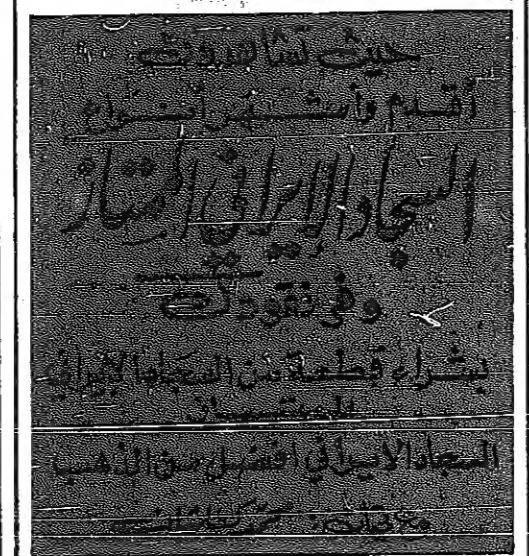 حيث تشاهدون
أقدم وأشهر أنواع
السجاد الإيراني الممتاز
وفر نقودك
بشراء قطعة من السجاد الإيراني
السجاد الايراني افضل من الذهب